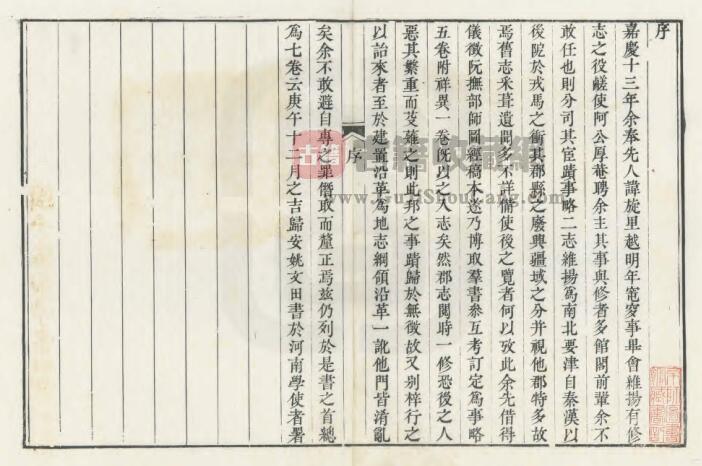 序
嘉慶十三年余奉先人諱旋里越明年窀穸事畢會維揚有修
志之役鹺使阿公厚菴聘余主其事與修者多館閣前輩余不
敢任也則分司其宦蹟事略二志維揚爲南北要津自秦漢以
後阨於戎馬之衝其郡縣之廢興疆域之分并視他郡特多故
焉舊志采葺遺聞多不詳備使後之覽者何以攷此余先借得
儀徵阮撫部師圖經稿本遂乃博取羣書參互考訂定爲事略
五卷附祥異一卷旣以之入志矣然郡志閱時一修恐後之人
惡其繁重而芟薙之則此邦之事蹟歸於無徵故又別梓行之
以詒來者至於建置沿革爲地志綱領沿革一訛他門皆淆亂
序
矣余不敢避自專之罪僭取而釐正焉茲仍列於是書之首總
爲七卷云庚午十二月之吉歸安姚文田書於河南學使者署
古籍收藏網
www.GuJiShouCang.com